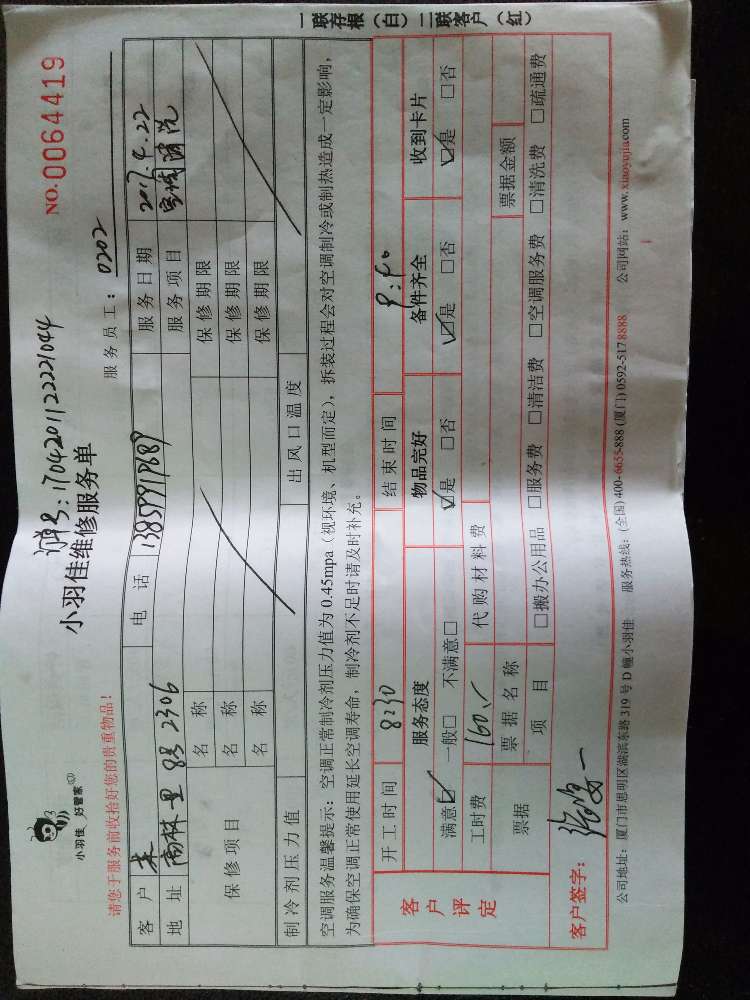 订单号:1704201122221044
小羽佳 好管家
小羽佳维修服务单
NO.0064419
请您于服务前收拾好您的贵重物品!
服务员工: 0202
客户 朱 电话 服务日期 2017.4.22
地址 南林里 83 2306 服务项目 清洗
保修项目 名称 保修期限
名称 保修期限
名称 保修期限
制冷剂压力值 出风口温度
空调服务温馨提示:空调正常制冷剂压力值为0.45mpa(视环境、机型而定),拆装过程会对空调制冷或制热造成一定影响,
为确保空调正常使用延长空调寿命,制冷剂不足时请及时补充。
开工时间 8:30 结束时间 9:40
客户评定 服务态度 物品完好 备件齐全 收到卡片
满意☑ 一般□ 不满意□ ☑是 □否 ☑是 □否 ☑是 □否
工时费 160 代购材料费
票据 票据名称 票据金额
项目 □搬办公用品 □服务费 □清洁费 □空调服务费 □清洗费 □疏通费
客户签字:
公司地址:厦门市思明区湖滨东路319号D幢小羽佳 服务热线:(全国)400-6655-888(厦门)0592-5178888 公司网站:www.xiaoyujia.com
一联存根(白)二联客户(红)